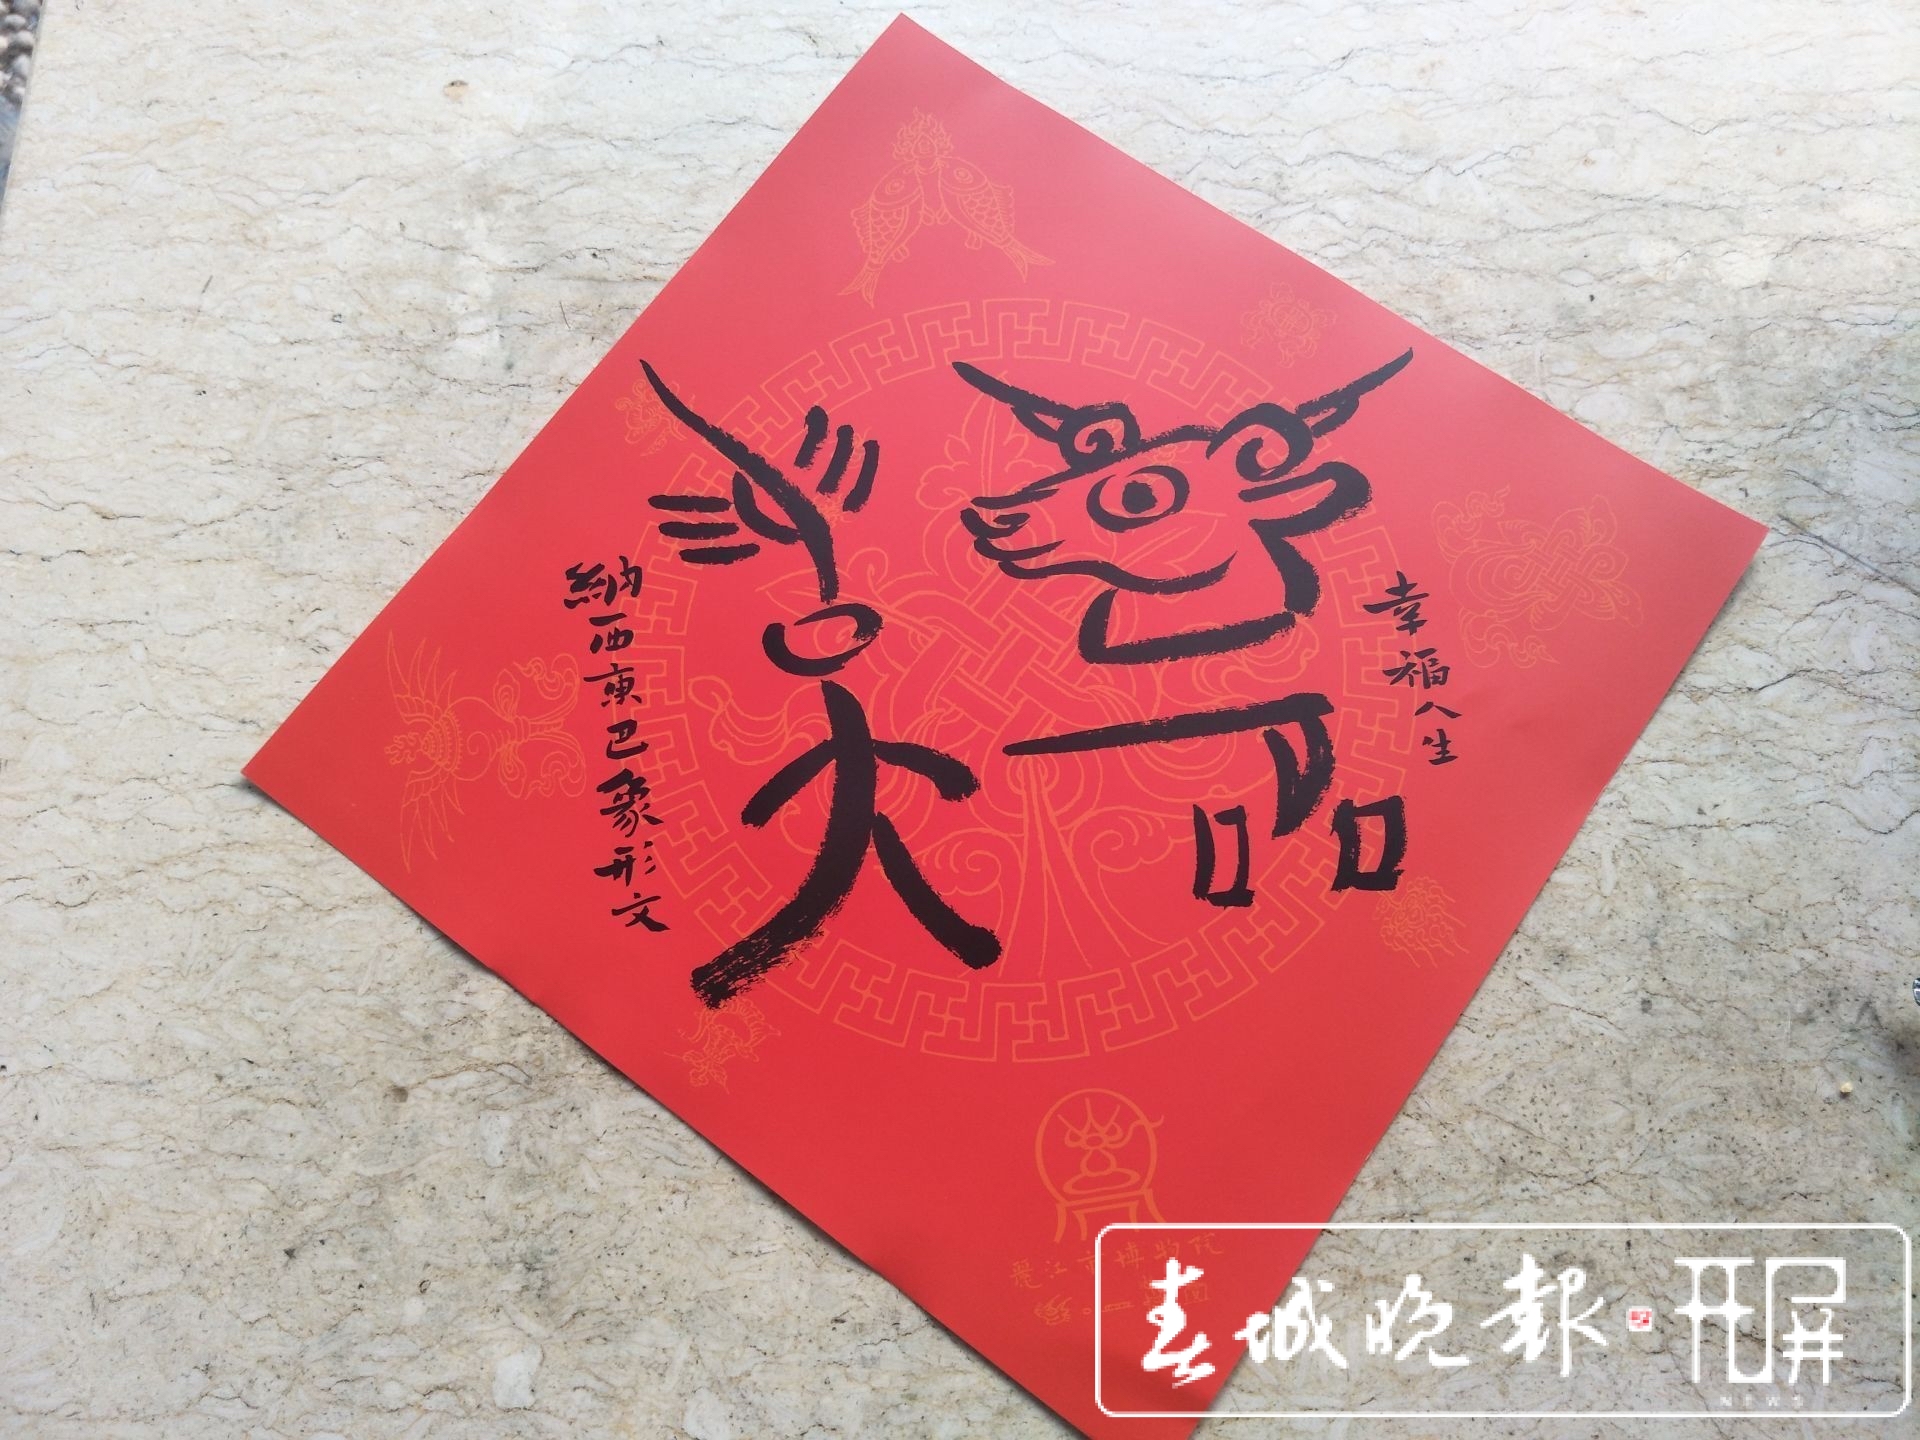 幸福人生
納西東巴象形文
麗江市博物院
春城晚報
开屏
NEWS